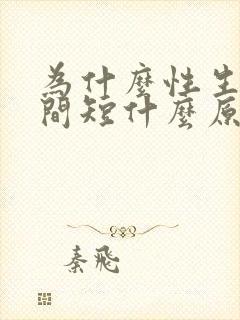 為什麼性生
間短什麼原
秦飛